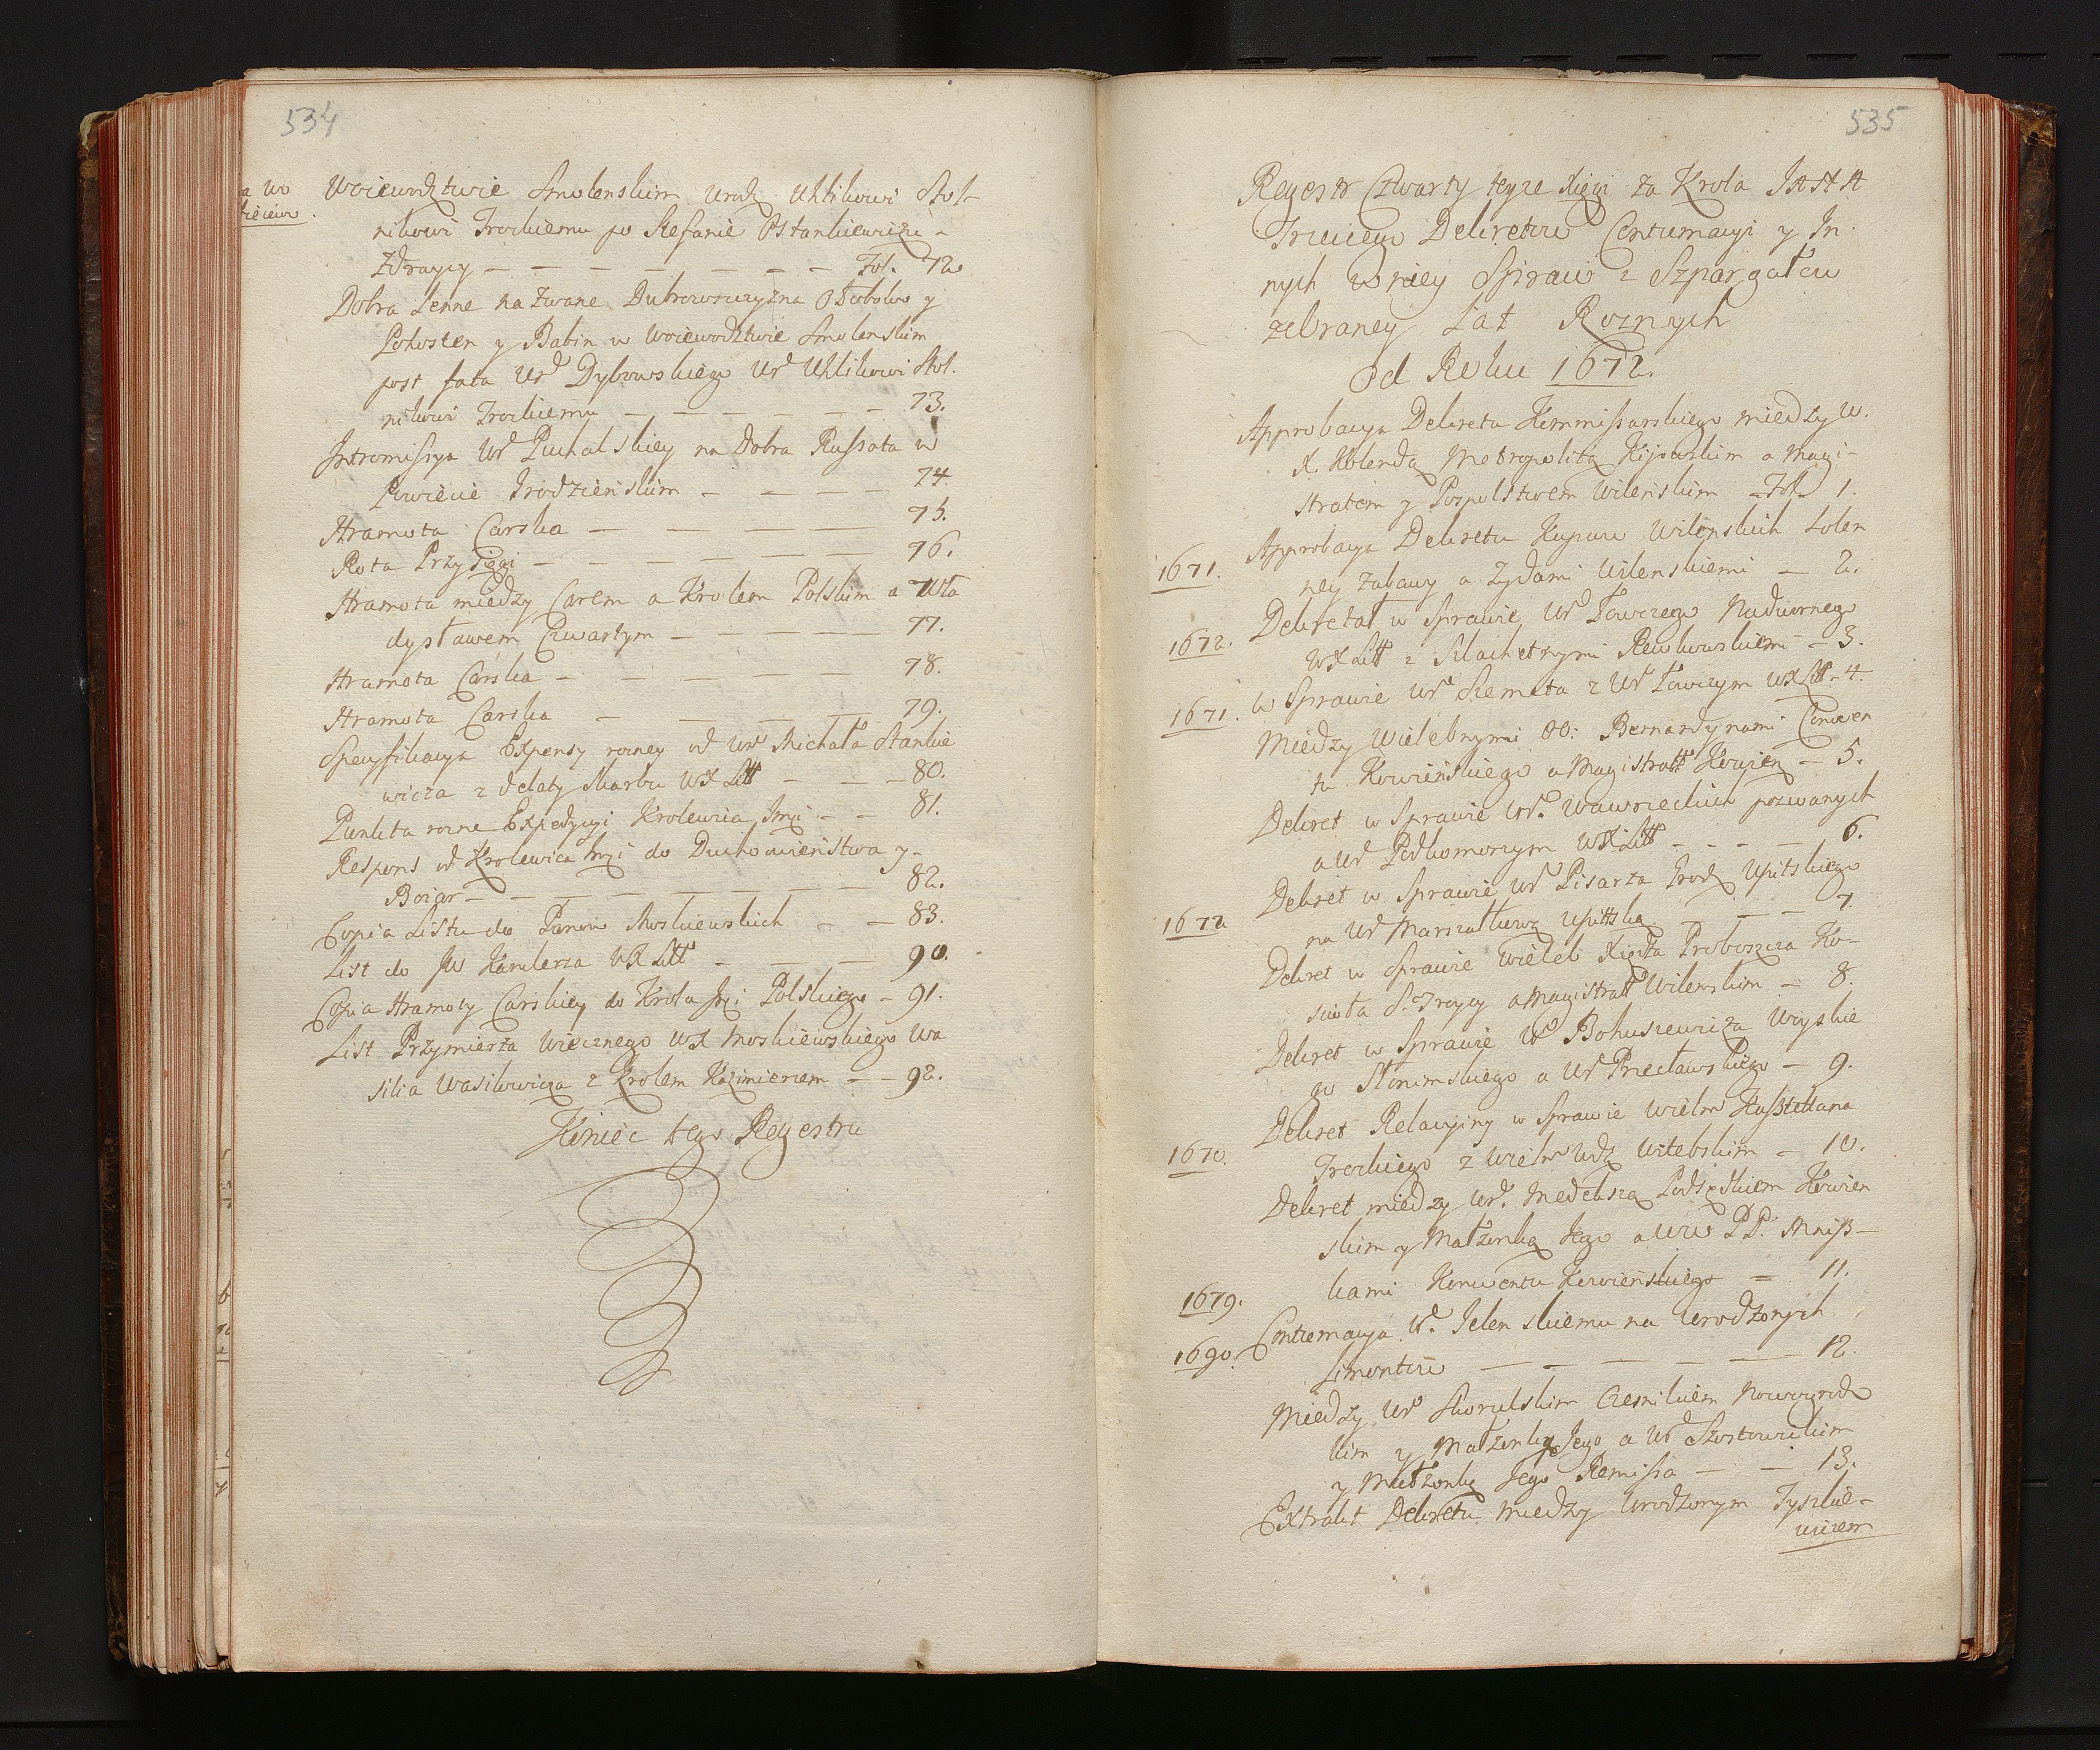 534
Woiewodztwie Smolenskim Urodz Uhlikowi Stol-
nikowi Trockiemu po Stefanie Ostankiewiczu -
Zdraycy - - - - - - - Fol. 72
Dobra Lenne nazwane Dubrowszczyzna Obobolwo y
Pohosten y Babin w Woiewodztwie Smolenskim
post fata Ur Dybowskiego Ur Uhlikowi Stol-
nikowi Trockiemu - - - - - - 73.
Intromissya Ur Puchalskiey na Dobra Russota w
Powiecie Grodzieńskim - - - - 74.
Hramota Carska - - - - 75.
Rota Przysięgi - - - - - - 76.
Hramota między Carem a Krolem Polskim a Wła
dysławem Czwartym - - - - - 77.
Hramota Carska - - - - - - 78.
Hramota Carska - - - - 79.
Specyfikacya Expensy rozney od Ur Michała Stankie
wicza z delaty Skarbu WX Litt - - - 80.
Punkta rozne Expedycyi Krolewica Jmci - - 81.
Respons od Krolewica Jmci do Duchowieństwa y -
Boiar - - - - - - - - 82.
Copia Listu do Panow Moskiewskich - - 83.
List do JW Kanclerza WX Litt - - - 90.
Copia Hramoty Carskiey do Krola Jmci Polskiego - 91.
List Przymierza Wiecznego WX Moskiewskiego Wa
silia Wasilewicza z Krolem Kazimierzem - - 92.
Koniec tego Regestru
535
Regestr Czwarty teyze Xięgi za Krola JANA
Trzeciego Dekretow Contumacyi y In-
nych w niey Spraw z Szpargałow
zebraney Lat Roznych
od Roku 1672.
Approbacya Dekretu Kommissarskiego miedzy W.
X. Kolendą Metropolitą Kijowskim a Magi-
stratem y Pospolstwem Wileńskim - Fol. 1.
1671. Approbacya Dekretu Kupcow Wilenskich Solen
ney zabawy a Zydami Wilenskiemi - 2.
1672. Dekretał w Sprawie Ur Łowczego Nadwornego
WX Litt z Slachetnymi Rewkowskiemi - 3.
1671. w Sprawie Ur Szemeta z Ur Łowczym WX Litt - 4.
Miedzy Wielebnymi OO: Bernardynami Conwen
tu Kowieńskiego a Magistratt Kowien - 5.
Dekret w Sprawie Ur. Wawrzeckich pozwanych
a Ur Podkomorzym WX Litt - - - - 6.
Dekret w Sprawie Ur Pisarza Grodz Upitskiego
1672 na Ur Marszałkową Upittską - - - 7.
Dekret w Sprawie Wieleb Xiędza Proboszcza Ko-
scioła S. Troycy a Magistratt Wilenskim - 8.
Dekret w Sprawie Ur Bohuszewicza Woyskie
go Słonimskiego a Ur Przecławskiego - 9.
Dekret Relacyiny w Sprawie Wielm Kasztellana
1670. Trockiego z Wielm Wdz Witebskim - 10.
Dekret miedzy Ur. Medekszą Podsędkiem Kowien
skim y Małzonką Jego a WW PP. Mnisz-
kami Konwentu Kowieńskiego - 11.
1679.
Contumacya Ur. Jelenskiemu na Urodzonych
1690. Limontow - - - - - - 12.
Miedzy Ur Skorulskim Czesnikiem Nowogrodz
kim y Małzonką Jego a Ur Szostowickim
y Małzonką Jego Remissa - - 13.
Extrakt Dekretu miedzy Urodzonym Tyszkie-
wiczem